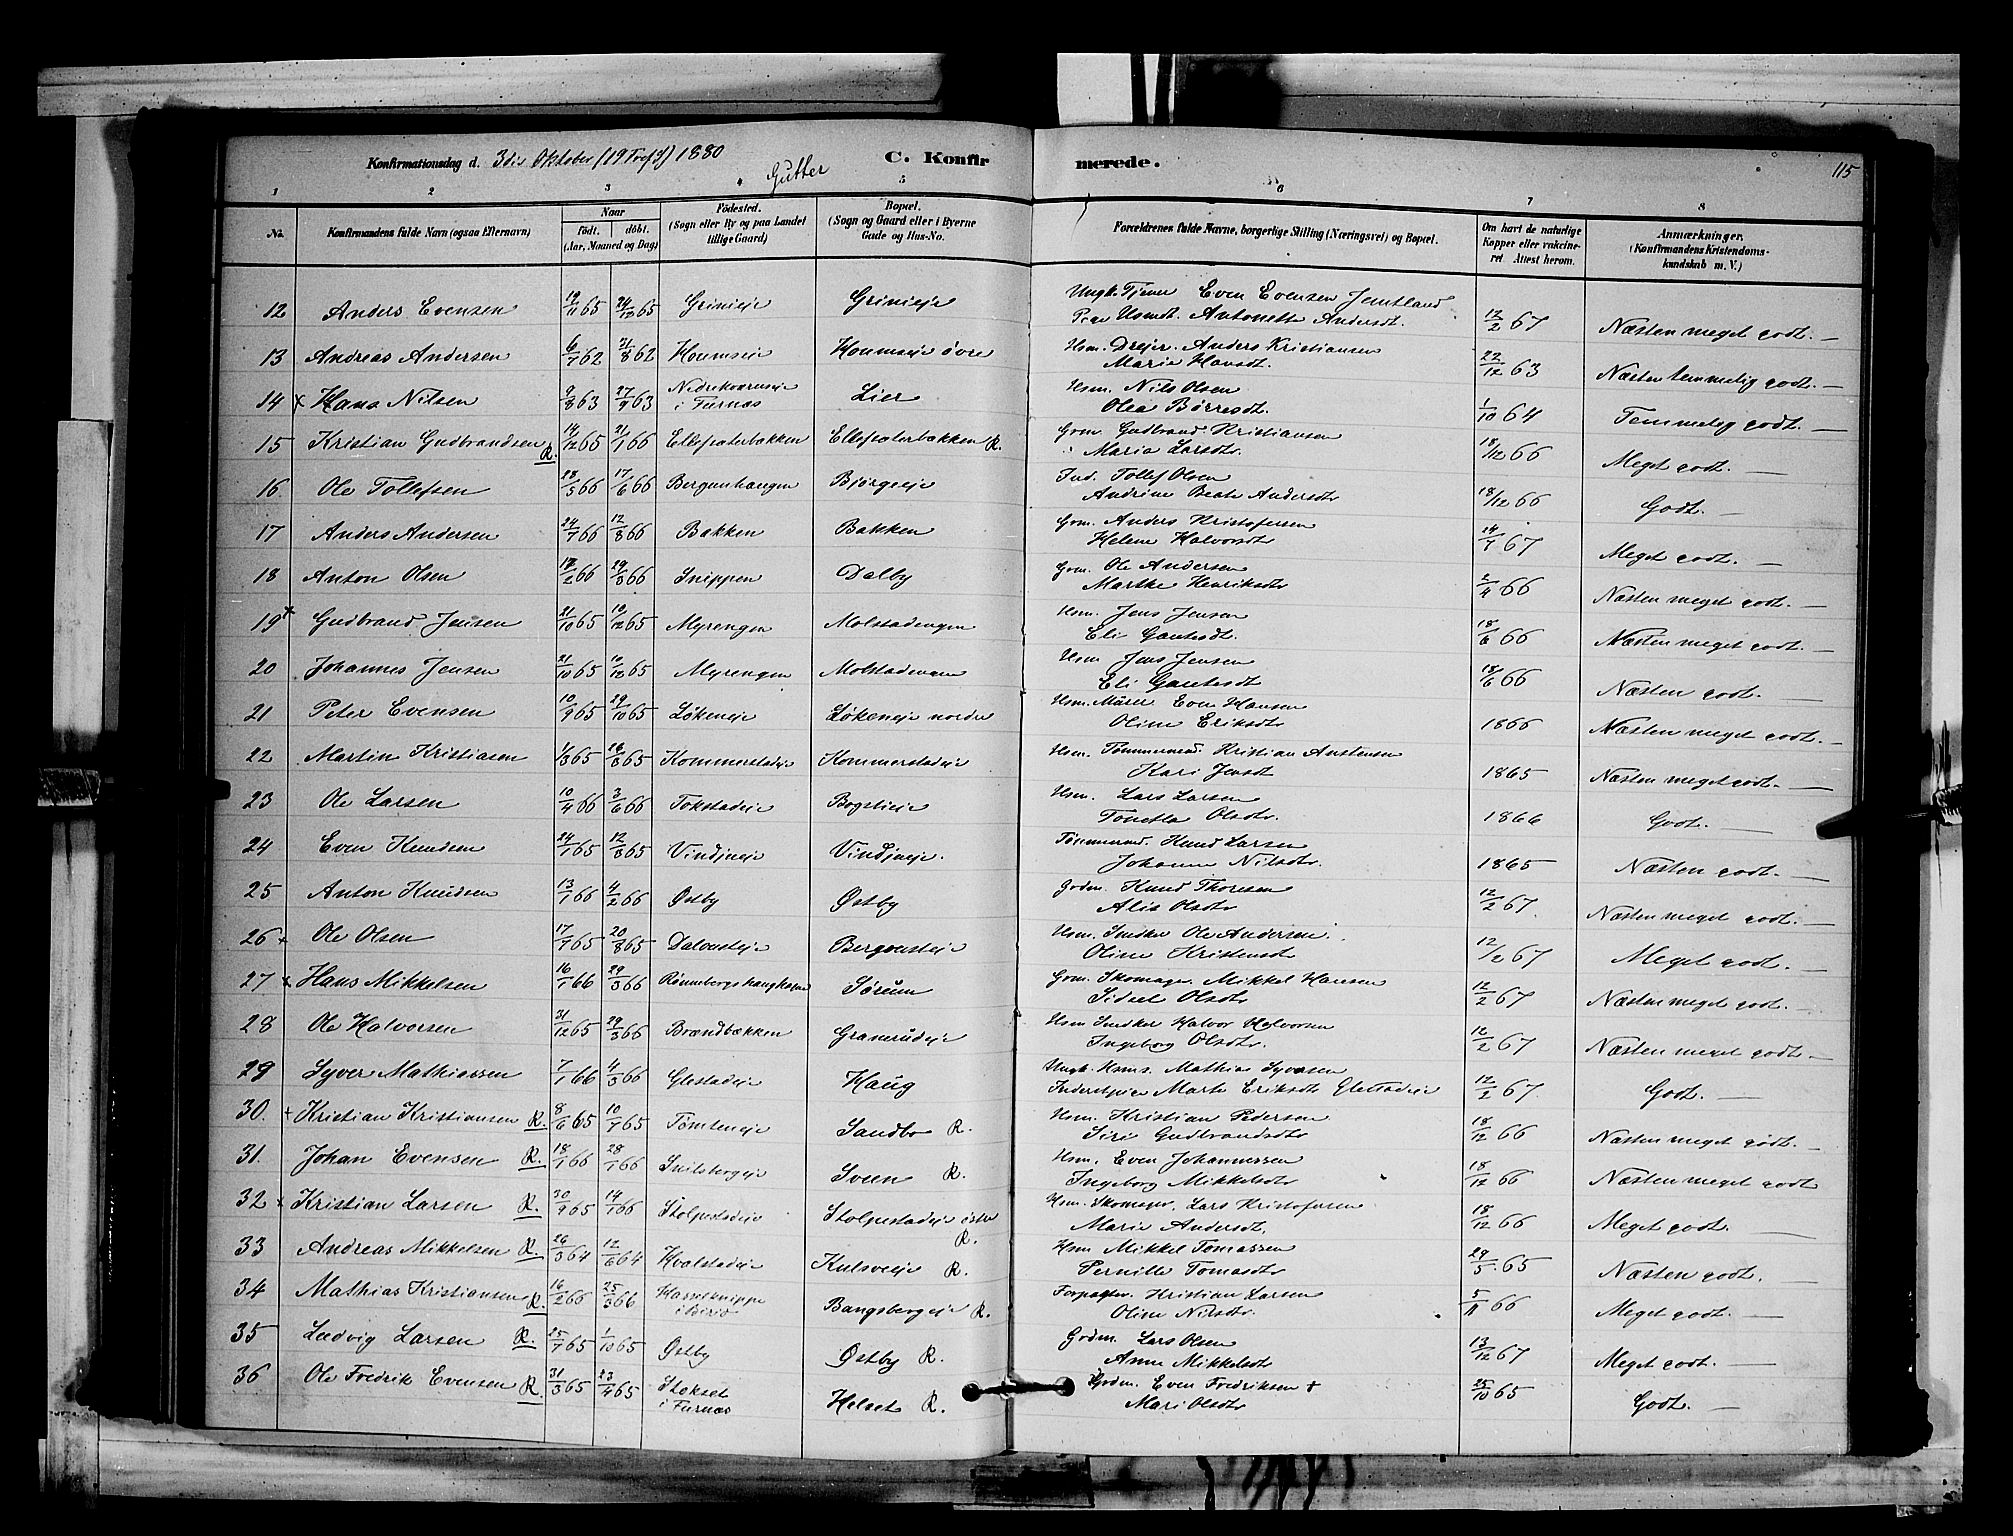 Konfirmationsdag d. 3die Oktober (19 Tref.) 1880 C. Konfir merede. 115
Gutter
1 2 3 4 5 6 7 8
No. Konfirmandens fulde Navn (ogsaa Efternavn) Naar født. døbt. (Aar, Maaned og Dag) Fødested. (Sogn eller By og paa Landet tillige Gaard) Bopæl. (Sogn og Gaard eller i Byerne Gade og Hus-No. Forældrenes fulde Navne, borgerlige Stilling (Næringsvei) og Bopæl. Om havt de naturlige Kopper eller vakcineret. Attest herom. Anmærkninger. (Konfirmandens Kristendomskundskab m. V.)
12 Anders Evensen 19/11 65 24/12 65 Grimieje Grinieje Ungk. Tjener Even Evensen Jemtland
Pige Antonette Andersdt. 12/2 67 Næsten meget godt. —
13 Andreas Andersen 6/7 62 31/8 62 Houmseje Houmseje övre Hsm. Drejer. Anders Kristiansen
Marie Hansdt. 22/12 63 Næsten temmelig godt. —
14 x Hans Nilsen 9/8 63 27/9 63 Nedrekværneeje i Furnæs Lier Hsm. Nils Olsen
Olea Börresdt. 1/10 64 Temmelig godt. —
15 Kristian Gudbrandsen R. 14/12 65 21/1 66 Ellefsæterbakken Ellefsæterbakken R. Grm. Gudbrand Kristiansen
Maria Larsdtr. 18/12 66 Meget godt. —
16. Ole Tollefsen 28/3 66 17/6 66 Bergenhaugen Bjørgeeje Ind. Tollef Olsen
Andrine Beate Andersdtr 18/12 66 Godt. —
17 Anders Andersen 24/7 66 12/8 66 Bakken Bakken Grm. Anders Kristofersen
Helene Halvorsdtr 24/7 67 Meget godt. —
18 Anton Olsen 18/2 66 29/3 66 Snippen Dalby Grm. Ole Andersen
Marthe Henriksdtr 2/4 66 Næsten meget godt. —
19 x Gudbrand Jensen 21/10 65 10/12 65 Myrengen Molstadengen Hsm. Jens Jensen
Eli Gautesdt. 18/6 66 Næsten meget godt. —
20 Johannes Jensen 21/10 65 10/12 65 Myrengen Molstadengen Hsm Jens Jensen
Eli Gautesdt 18/6 66 Næsten godt. —
21 Peter Evensen 10/9 65 29/10 65 Løkeneje Løkeneje nordre Hsm. Murer Even Hansen
Oline Eriksdtr 1866 Næsten meget godt. —
22 Martin Kristiasen 1/3 65 Kommerstadeje Kommerstadeje Hsm. Tømmermd. Kristian Austensen
Kari Jensdt 1865 Næsten meget godt. —
23 Ole Larsen 10/4 66 3/6 66 Tokstadeje Bogslieje Hsm. Lars Larsen
Tonetta Olsdtr. 1866 Godt. —
24 Even Knudsen 24/1 65 12/3 65 Vindjueje Vindjueje. Tömmermd. Knud Larsen
Johanne Nilsdtr. 1865 Næsten godt. —
25 Anton Knudsen 13/1 66 4/2 66 Østby Østby Grdm. Knud Thoresen
Alis Olsdtr 12/2 67. Næsten meget godt. —
26 + Ole Olsen 17/7 65 20/8 65 Dalvasteje Bergvasteje Hsm. Snedker Ole Andersen
Oline Kristensdt 12/2 67 Meget godt. —
27 x Hans Mikkelsen 16/1 66 29/3 66 Sørum Grm. Skomager. Mikkel Hansen
Sidsel Olsdtr 12/2 67 Næsten meget godt. —
28 Ole Halvorsen 31/12 65 29/3 66 Brændbækken Granerudeje Hsm Snedker Halvor Halvorsen
Ingeborg Olsdtr. 12/2 67 Næsten meget godt. —
29 Syver Mathiassen 7/1 66 4/3 66 Glestadeje Haug Ungk. Hsms. Mathias Syversen
Inderstpige Marte Eriksdt Glestadeje 12/2 67. Godt. —
30. + Kristian Kristiansen R. 8/6 65 10/7 65 Tömteneje Sandbo R. Hsm. Kristian Pedersen
Siri Gudbrandsdtr 18/12 66 Næsten meget godt. —
31. Johan Evensen R. 18/1 66 28/1 66 Snilsbergeje Sveen R. Hsm. Even Johannessen
Ingeborg Mikkelsdtr 18/12 66 Næsten meget godt
32 x Kristian Larsen R. 30/9 65 14/1 66 Stolpestadeje Stolpestadeje östre R. Hsm. Skomager. Lars Kristofersen
Marie Andersdt. 18/12 66 Meget godt. —
33 Andreas Mikkelsen R. 26/3 64 12/6 64 Kvalstadeje Kulsveeje R. Hsm Mikkel Tomassen
Pernille Tomasdtr 29/5 65 Næsten godt. —
34 Mathias Kristiansen R. 16/2 66 25/3 66 Hasseknippe i Biri Bangsbergeje R. Forpagter. Kristian Larsen
Oline Nilsdtr. 5/11 66 Meget godt. —
35 Ludvig Larsen R. 25/7 65 1/10 65 Østby Østby R. Grdm. Lars Olsen
Anne Mikkelsdtr 13/12 67 Meget godt. —
36 Ole Fredrik Evensen R. 31/3 65 23/4 65 Stokset i Furnæs Helset R. Grdm. Even Fredriksen +
Mari Olsdtr 25/10 65 Godt. —